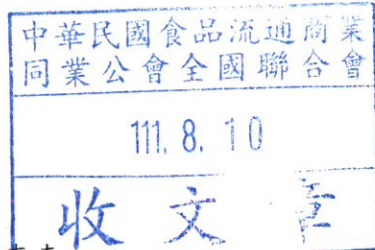 中華民國食品流通商業
同業公會全國聯合會
111. 8. 10
收文章